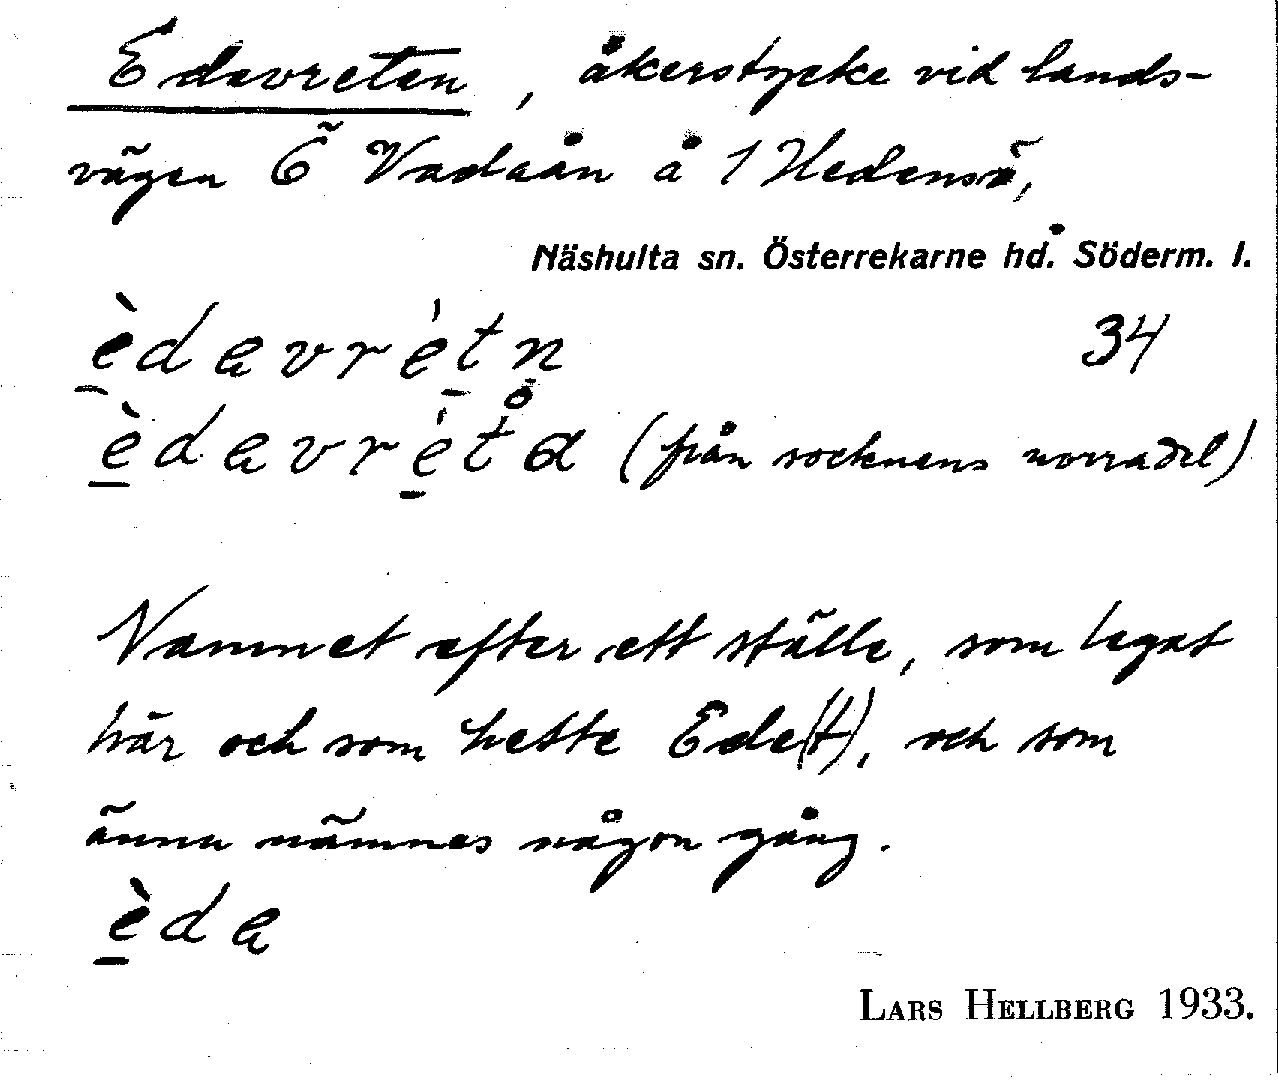 Edavreten, åkerstycke vid lands-
vägen Ö Vadaån å 1 Hedensö,
Näshulta sn. Österrekarne hd. Söderm. l.
èdavrètn 34
èdavrètå (från socknens norra del)
Namnet efter ett ställe, som legat
här och som hette Ede(t), och som
ännu nämnes någon gång.
èda
LARS HELLBERG 1933.